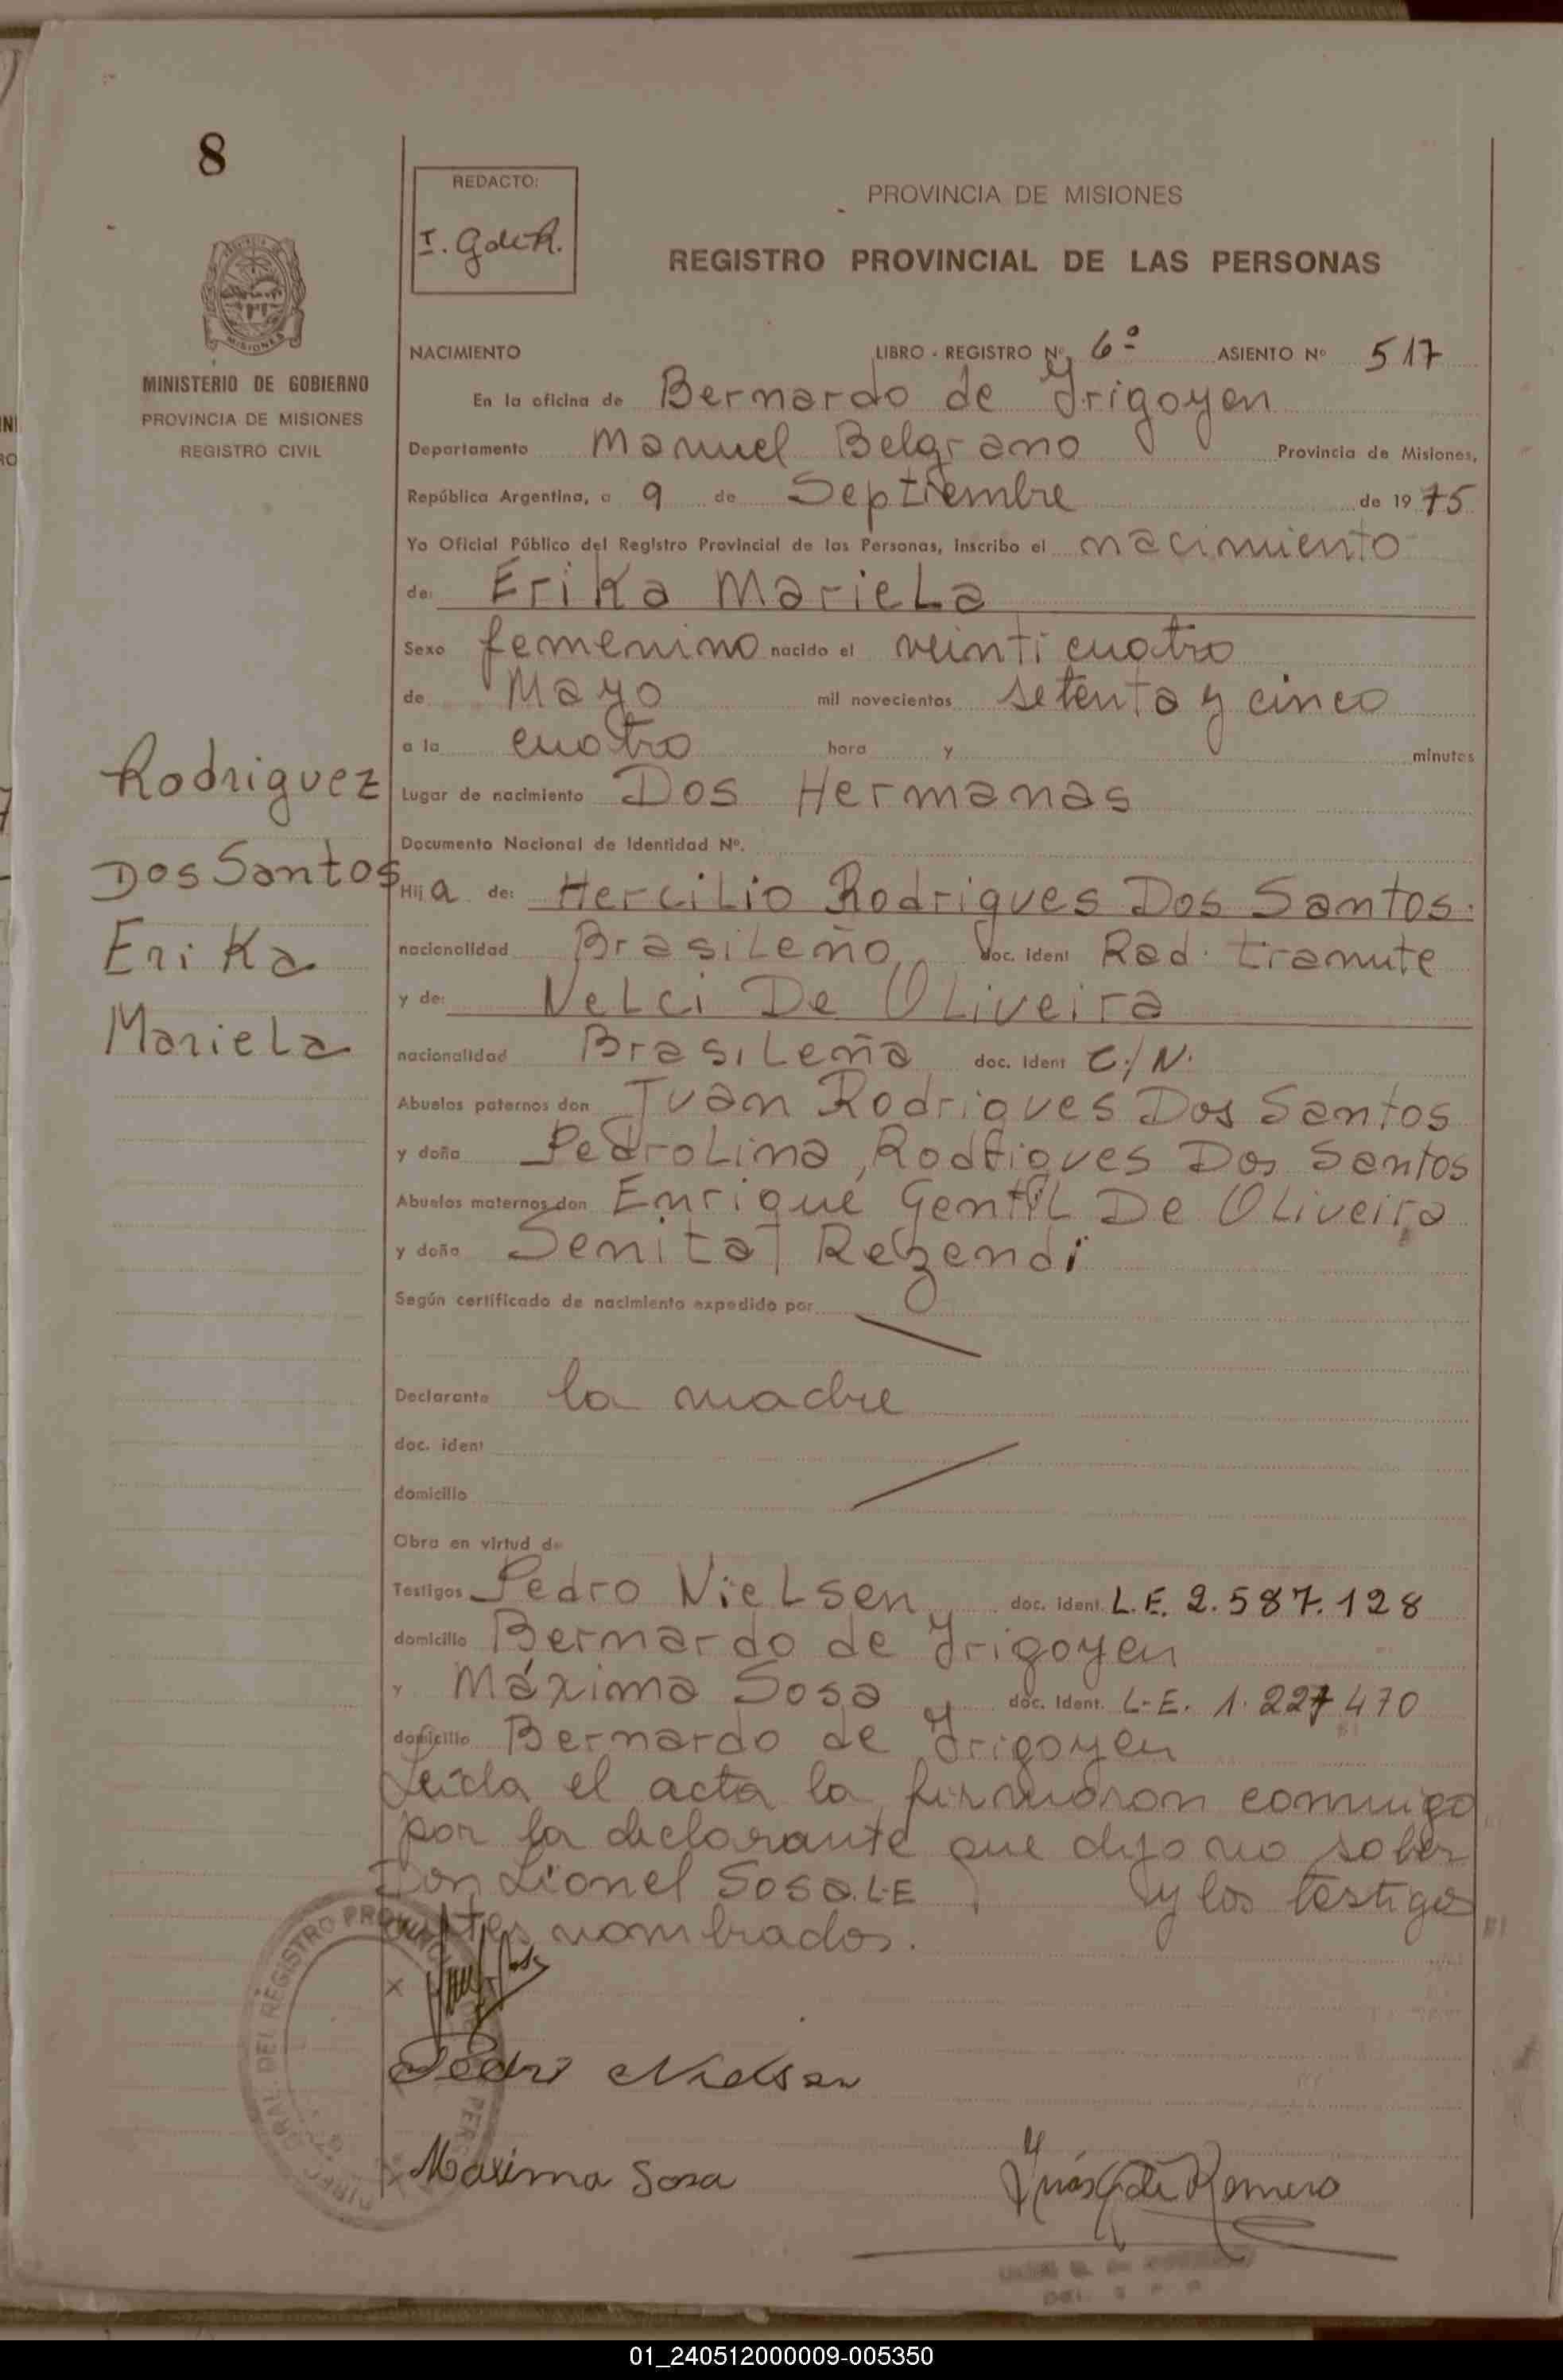 8
REDACTO:
I. G de R.
PROVINCIA DE MISIONES
REGISTRO PROVINCIAL DE LAS PERSONAS
MISIONES
MINISTERIO DE GOBIERNO
PROVINCIA DE MISIONES
REGISTRO CIVIL
NACIMIENTO LIBRO - REGISTRO Nº 6º ASIENTO Nº 517
En la oficina de Bernardo de Irigoyen
Departamento Manuel Belgrano Provincia de Misiones,
República Argentina, a 9 de Septiembre de 1975
Yo Oficial Público del Registro Provincial de las Personas, inscribo el nacimiento
de: Erika Mariela
Sexo femenino nacido el veinti cuatro
de Mayo mil novecientos setenta y cinco
a la cuatro hora y minutos
Lugar de nacimiento Dos Hermanas
Documento Nacional de Identidad Nº.
Rodriguez
Dos Santos
Erika
Mariela
Hija de: Hercilio Rodrigues Dos Santos.
nacionalidad Brasileño, doc. ident Rad. tramite
y de: Nelci De Oliveira
nacionalidad Brasileña doc. ident C./N.
Abuelos paternos don Juan Rodrigues Dos Santos
y doña Pedrolina, Rodrigues Dos Santos
Abuelos maternos don Enrique Gentil De Oliveira
y doña Senita Rezendi
Según certificado de nacimiento expedido por
Declarante la madre
doc. ident
domicilio
Obra en virtud de
Testigos Pedro Nielsen, doc. ident. L.E. 2.587.128
domicilio Bernardo de Irigoyen
y Máxima Sosa doc. ident. L.E. 1.227.470
domicilio Bernardo de Irigoyen
Leída el acta la firmaron conmigo
por la declarante que dijo no saber
Don Lionel Sosa.L.E y los testigos
antes nombrados.
Pedro Nielsen
Maxima Sosa
Inés G de Romero
01_240512000009-005350